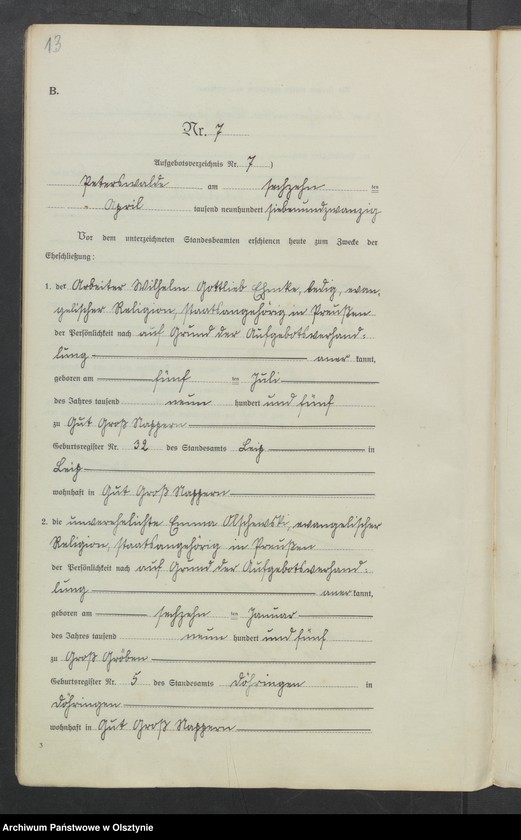 13
B.
Nr. 7
Aufgebotsverzeichnis Nr. 7 )
Peterswalde am sechzehn ten
" April tausend neunhundert siebenundzwanzig
Vor dem unterzeichneten Standesbeamten erschienen heute zum Zwecke der
Eheschließung:
1. der Arbeiter Wilhelm Gottlieb Ehmke, ledig, evan-
gelischer Religion, staatsangehörig in Preußen
der Persönlichkeit nach auf Grund der Aufgebotsverhand-
lung aner kannt,
geboren am fünf ten Juli
des Jahres tausend neun hundert und fünf
zu Gut Groß Nappern
Geburtsregister Nr. 32 des Standesamts Leip in
Leip
wohnhaft in Gut Groß Nappern
2. die unverehelichte Emma Olschewski, evangelischer
Religion, staatsangehörig in Preußen
der Persönlichkeit nach auf Grund der Aufgebotsverhand-
lung aner kannt,
geboren am sechzehn ten Januar
des Jahres tausend neun hundert und fünf
zu Groß Gröben
Geburtsregister Nr. 5 des Standesamts Döhringen in
Döhringen
wohnhaft in Gut Groß Nappern
Archiwum Państwowe w Olsztynie